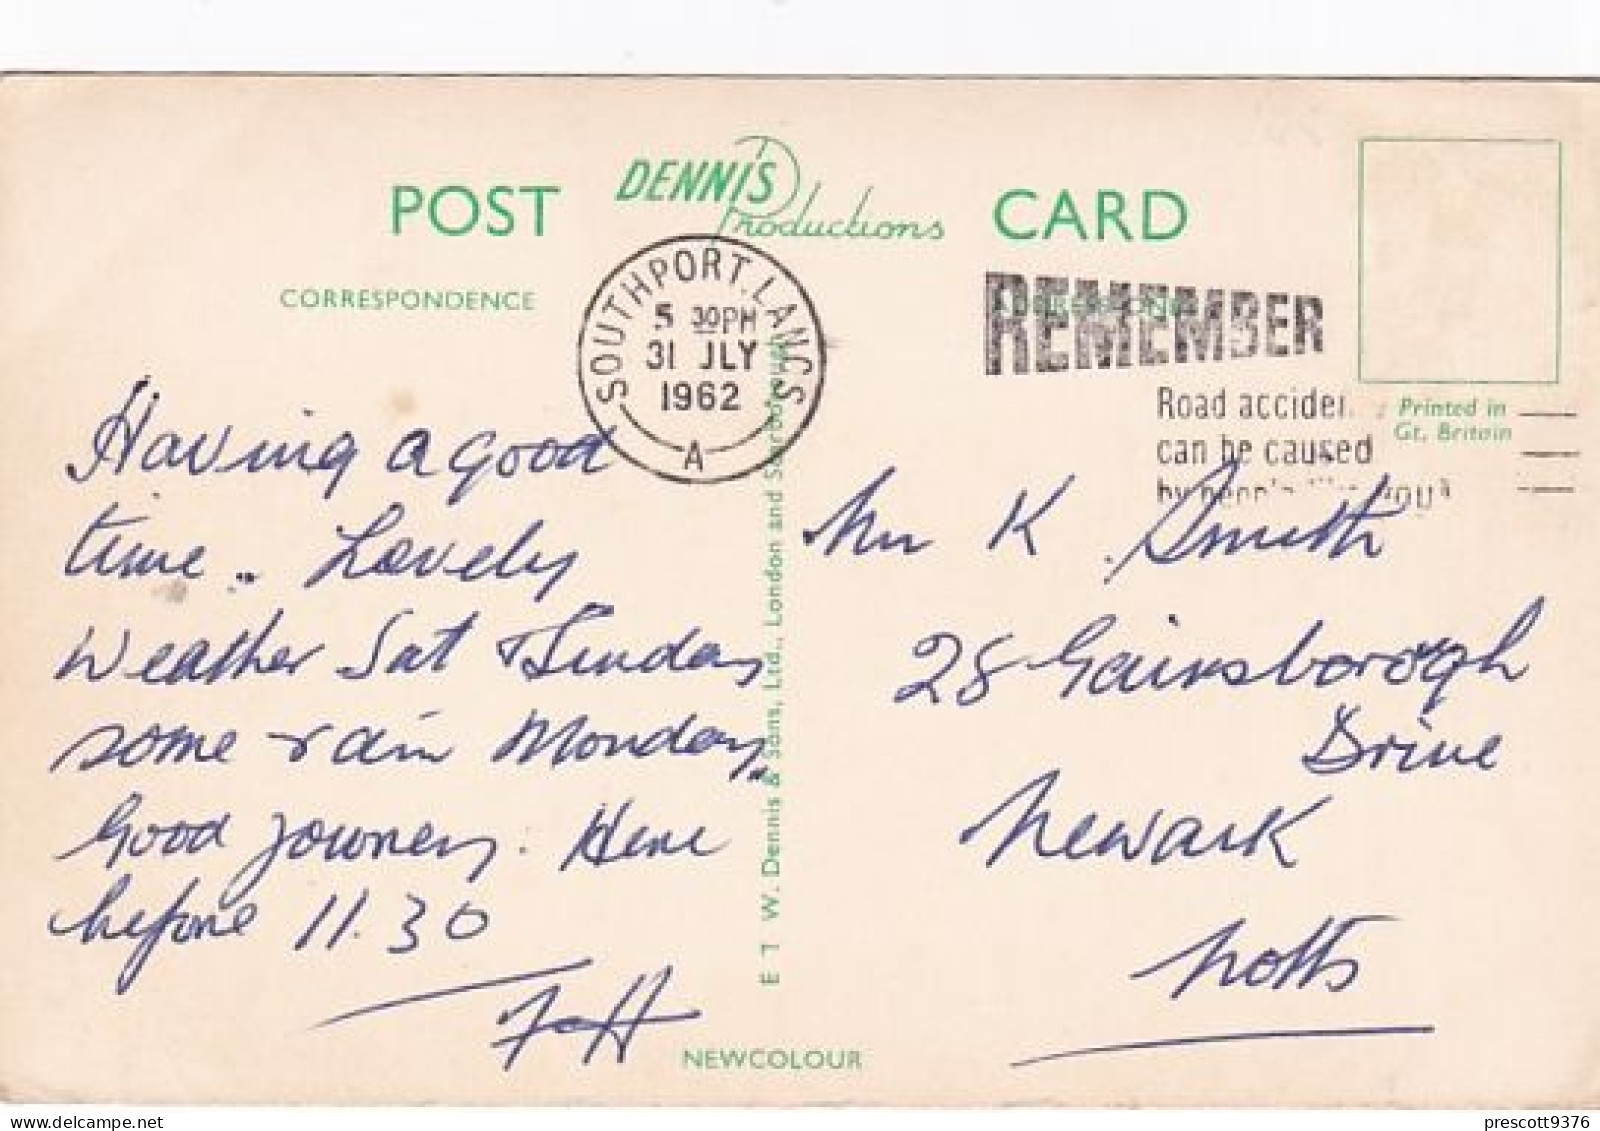 POST
DENNIS
Productions
CARD
CORRESPONDENCE
SOUTHPORT. LANCS
5 30PM
31 JLY
1962
A
REMEMBER
Road acciden
can be caused
by people like you
Printed in
Gt. Britain
Having a good
time.. Lovely
Weather Sat & Sunday
some rain Monday,
Good journey. Here
before 11.30
FH
E T W. Dennis & Sons, Ltd., London and Scarborough
Mr K. Smith
28 Gainsborough
Drive
Newark
Notts
NEWCOLOUR
prescott9376